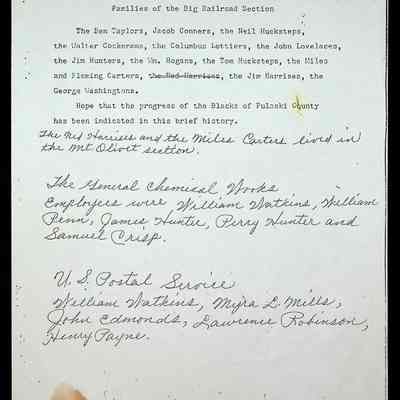 Families of the Big Railroad Section
The Ben Taylors, Jacob Conners, the Neil Hucksteps,
the Walter Cockerams, the Columbus Lottiers, the John Lovelaces,
the Jim Hunters, the Wm. Hogans, the Tom Hucksteps, the Miles
and Fleming Carters, the Ned Harrises, the Jim Harrises, the
George Washingtons.
Hope that the progress of the Blacks of Pulaski County
has been indicated in this brief history.
The Ned Harrises and the Miles Carters lived in
the Mt Olivet section.
The General Chemical Works
Employees were William Watkins, William
Penn, James Hunter, Perry Hunter and
Samuel Crisp.
U.S. Postal Service
William Watkins, Myra L. Mills,
John Edmonds, Lawrence Robinson,
Henry Payne.